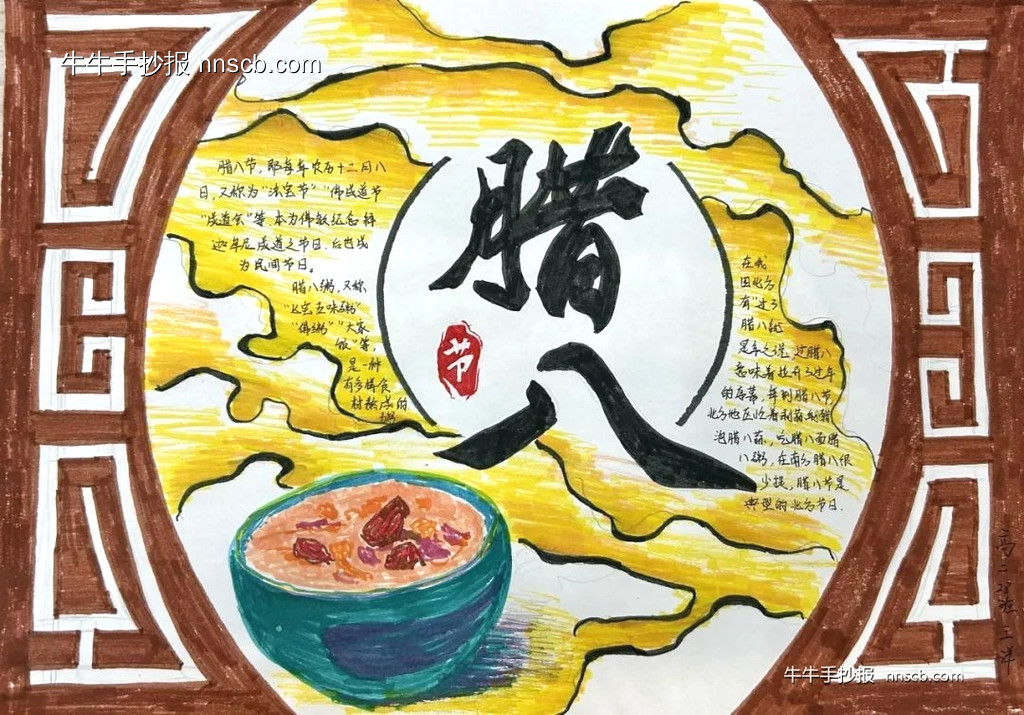 牛牛手抄报 nnscb.com
腊八
节
腊八节,即每年农历十二月八
日,又称为"法宝节" "佛成道节
"成道会"等。本为佛教纪念释
迦牟尼成道之节日,后也成
为民间节日。
腊八粥,又称
"七宝五味粥"
"佛粥" "大家
饭"等,
是一种
有多样食
材熬成的
粥
在我
国北方
有"过了
腊八就
是年之说,过腊八
意味着拉开了过年
的序幕,每到腊八节
北方地区忙着剥蒜制醋
泡腊八蒜,吃腊八面腊
八粥,在南方腊八很
少提,腊八节是
典型的北方节日.
高二
班
牛牛手抄报 nnscb.com